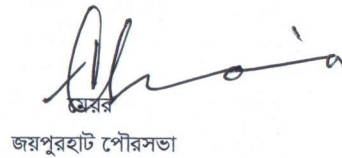 মেয়র
জয়পুরহাট পৌরসভা